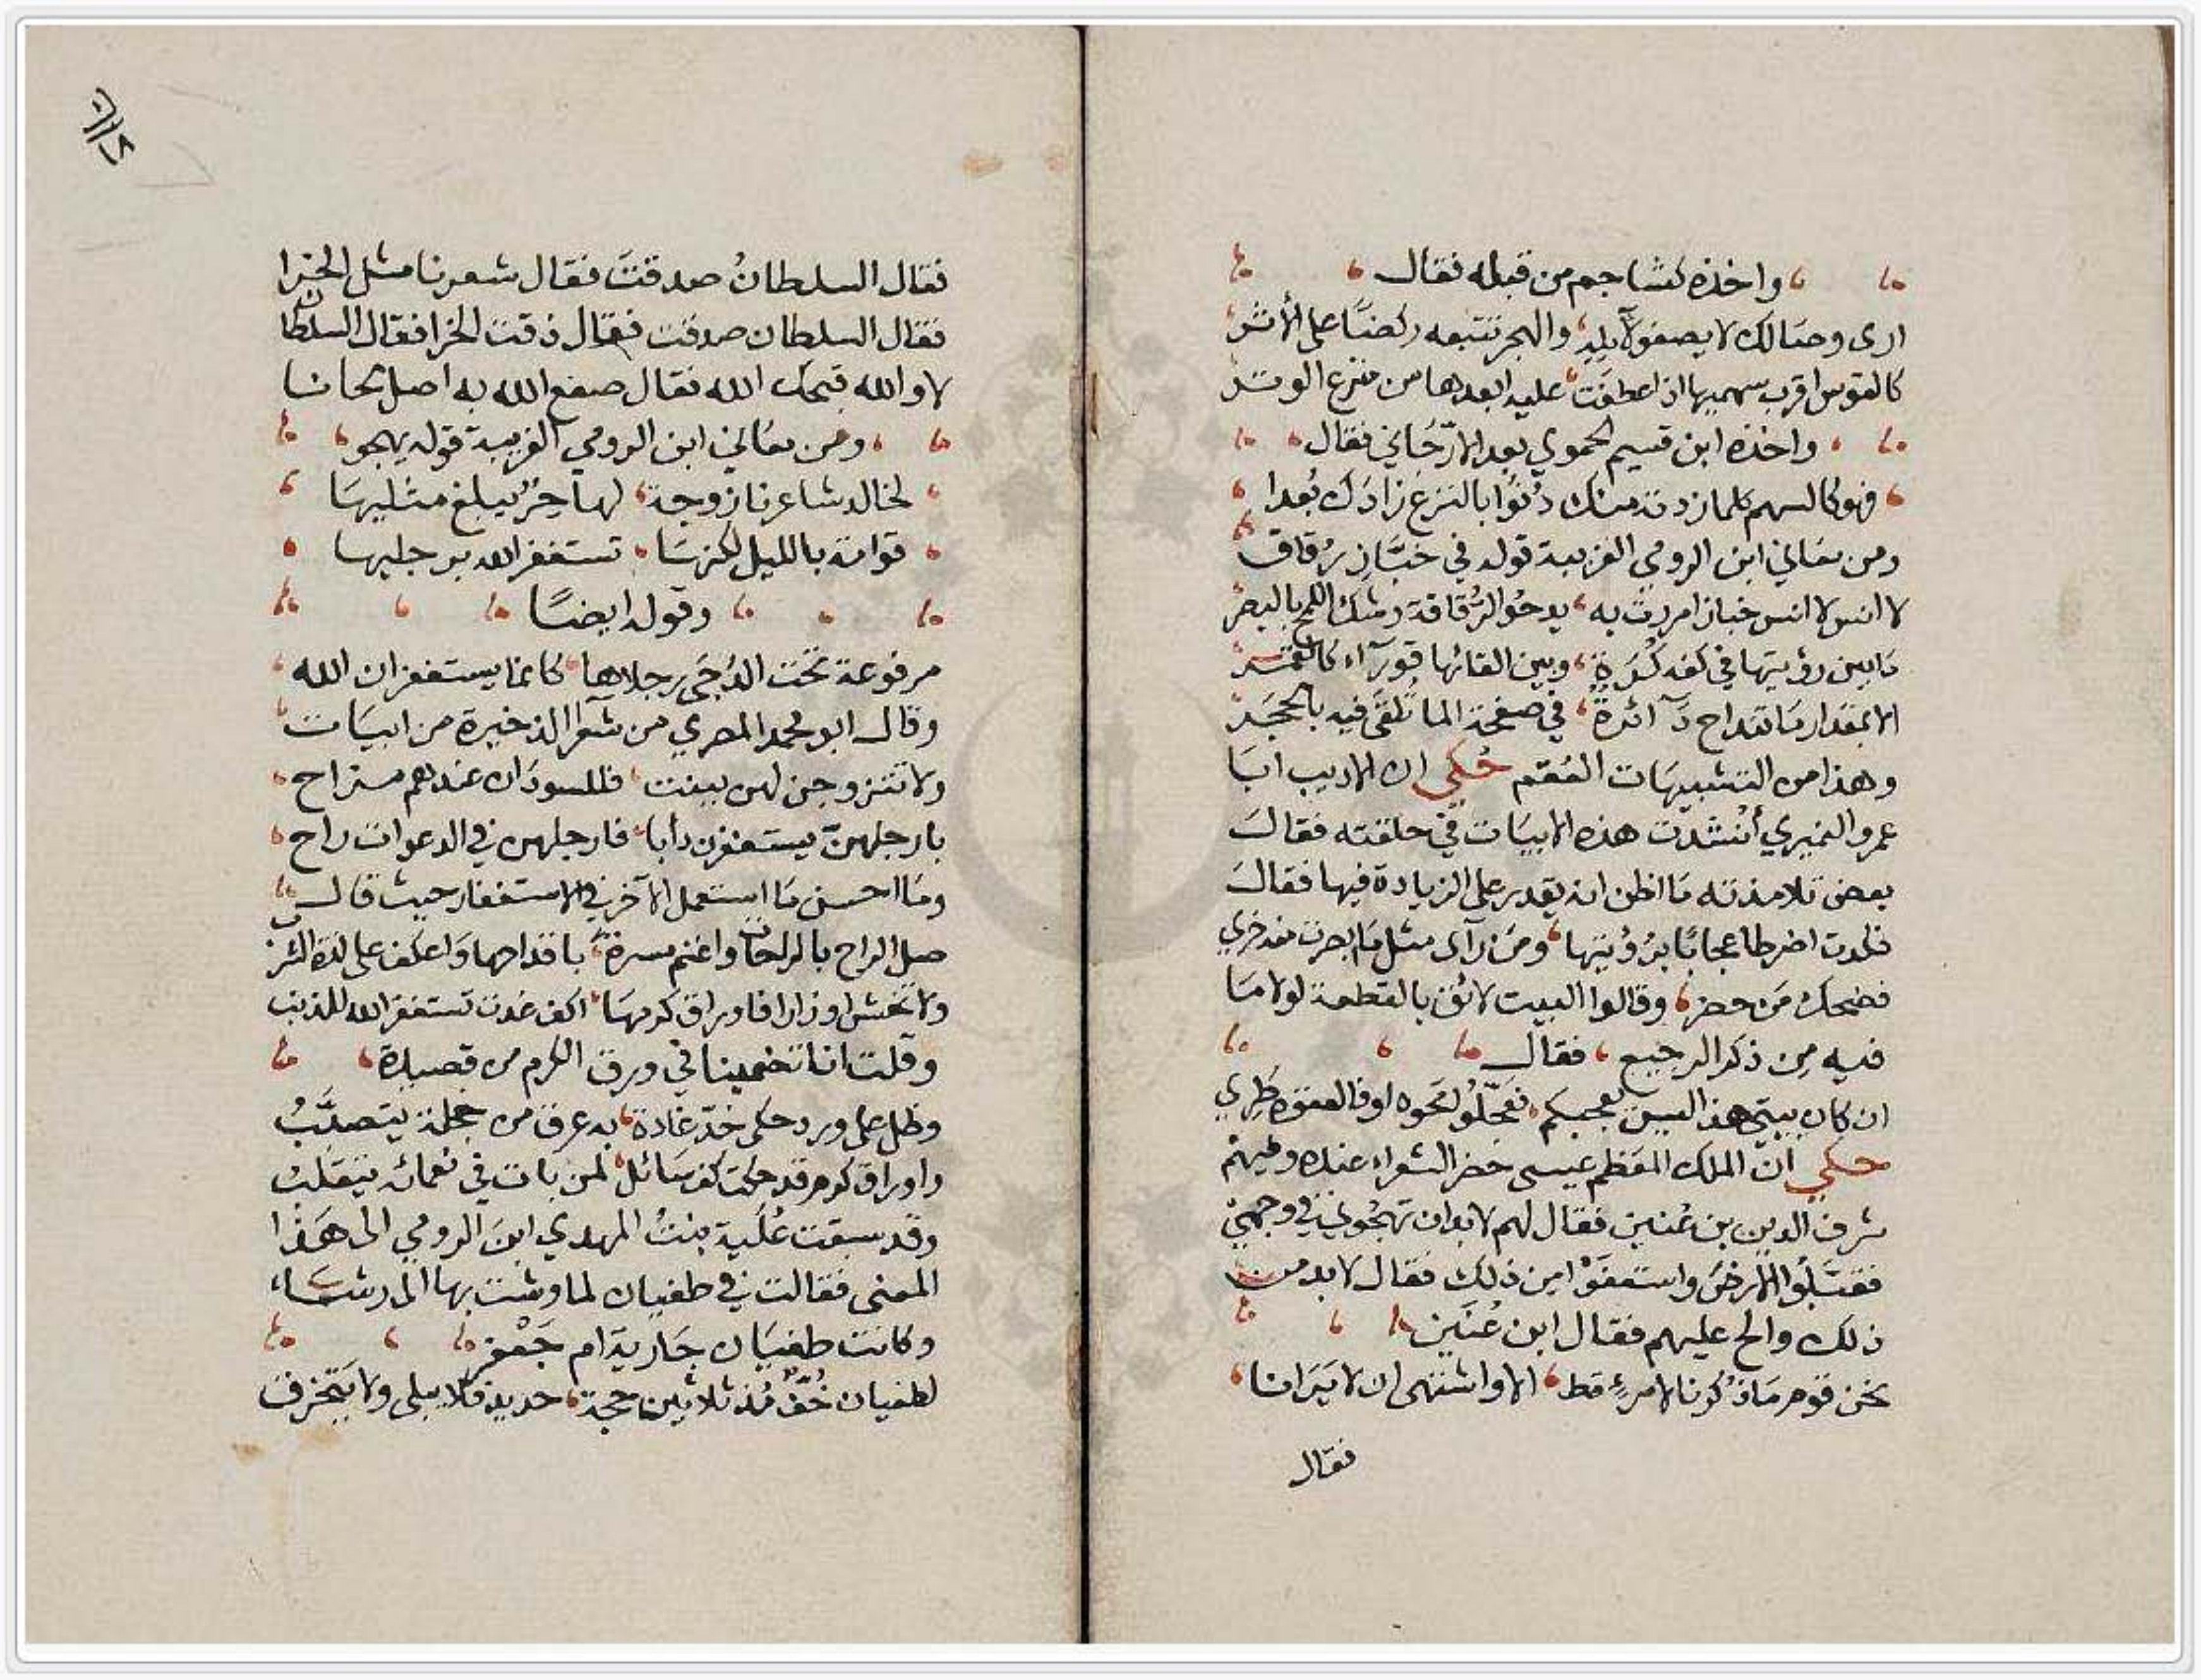 واخذه كشاجم من قبله فقال
ارى وصالك لا يصفو لآمله والهجر تتبعه ركضا على الأثر
كالقوس اقرب سهميها اذا عطفت عليه ابعدها من منزع الوتر
واخذه ابن قسيم الحموي بعد الارّجاني فقال
فهو كالسهم كلما زدته منك دُنُوّا بالنزع زادك بُعدا
ومن معاني ابن الرومي الغريبة قوله في خبّاز رُقاق
لا انس لا انس خبازا مررت به يدحو الرُّقاقة وشك اللمح بالبصر
مَا بين رؤيتها في كفه كُرَةً وبين القائها قورآء كالقمر
الا بمقدار مَا تنداح دَآئرةً في صفحة الما تُلقَى فيه بالحجَر
وهذا من التشبيهَات العُقم حُكي ان الاديب ابَا
عمرو النميري أنشدت هذه الابيَات في حلقته فقالَ
بعض تلامذته مَا اظن انه يقدر على الزيادة فيها فقالَ
فكدت اضرط اعجابًا برُؤيتها ومَن رآى مثل مَا ابصرت منه خري
فضحك مَن حضر وقالوا البيت لائق بالقطعة لولا مَا
فيه مِن ذكر الرجيع فقالَ
ان كان بيتي هذا ليس يعجبكم فعجّلُو لمحوه اوفا لعقوه طري
حكي انّ الملك المعَظم عيسى حضر الشعراء عنده وفيهم
شرف الدين بن عُنين فقال لهم لا بد ان تهجُوني في وجهي
فقبّلُوا الارضَ واستعفَوْا من ذلك فقال لا بد من
ذلك والح عليهم فقال ابن عُنَين
نحن قوم مَا ذُكرنا لامرءٍ قط الا واشتهى ان لا يَرَانا
فقال
فقال السلطانُ صدقتَ فقال شعرنا مثل الخرا
فقال السلطان صدقت فقال ذقت الخرا فقال السلطان
لا والله قبحك الله فقال صفع الله به اصل لحانا
ومن معَاني ابن الرومي الغريبة قوله يهجو
لخالد شاعرنا زوجة لها حِرٌ يبلغ مثليهَا
قوامة بالليل لكنهَا تستغفر الله برجليها
وقوله ايضًا
مرفوعة تحت الدُجَى رجلاها كانما يستغفران الله
وقال ابو محمد المصري من شعرا الذخيرة من ابيَات
ولا تتزوجن لهم ببنت فللسودَان عندهم مستراح
بارجلهنّ يستغفرن دأبا فارجلهن في الدعوات راح
ومَا احسن مَا استعمل الآخر في الاستغفار حيث قال
صل الراح بالراحات واغنم مسرةً باقداحها وَاعكف على لذة الشرب
ولا تخش اوزارا فاوراق كرمهَا اكف غدت تستغفر الله للذنب
وقلت انا تضمينا في ورق الكرم من قصيدة
وظل على ورد حكى خدّ غادة به عرق من خجلة يتصبَّبُ
واوراق كرم قد حكت كف سَائل لمن بات في نعمائه يتقلبُ
وقد سبقت عُلَية بنتُ المهدي ابنَ الرومي الى هَذا
المعنى فقالت في طغيان لما وشت بها الى رشَاء
وكانت طغيَان جَارية ام جَعْفر
لطغيان خُفٌّ مُذ ثلاثين حجة حديد فلا يبلى ولا يتخرق